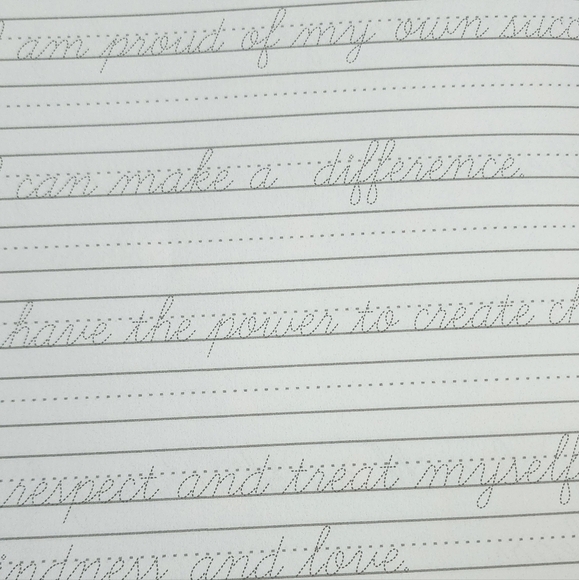 am proud of my own succ
can make a difference.
have the power to create ch
respect and treat myself
indness and love.